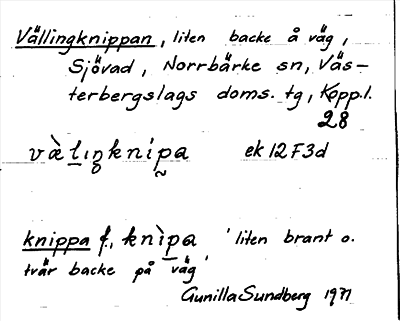 Vällingknippan, liten backe å väg,
Sjövad, Norrbärke sn, Väs-
terbergslags doms. tg, Kopp.l.
28
vὰlıŋknìpa ek 12F3d
knippa f., knìpa 'liten brant o.
tvär backe på väg'
Gunilla Sundberg 1971